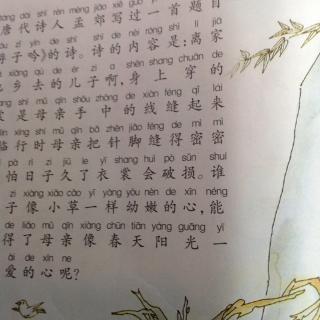 dài shī rén mèng jiāo xiě guò yì shǒu tí
唐代诗人孟郊写过一首题目
zǐ yín de shī shī de nèi róng shì lí jiā
子吟》的诗。诗的内容是:离家
xiāng qù de ér zi a shēn shang chuān de
乡去的儿子啊,身上穿的
shì mǔ qīn shǒu zhōng de xiàn féng qǐ lái
是母亲手中的线缝起来
lín xíng shí mǔ qīn bǎ zhēn jiǎo féng de mì mì
临行时母亲把针脚缝得密密
pà rì zi jiǔ le yī shang huì pò sǔn shuí
怕日子久了衣裳会破损。谁
zi xiàng xiǎo cǎo yí yàng yòu nèn de xīn néng
子像小草一样幼嫩的心,能
de liǎo mǔ qīn xiàng chūn tiān yáng guāng yí
得了母亲像春天阳光一
ài de xīn ne
爱的心呢?